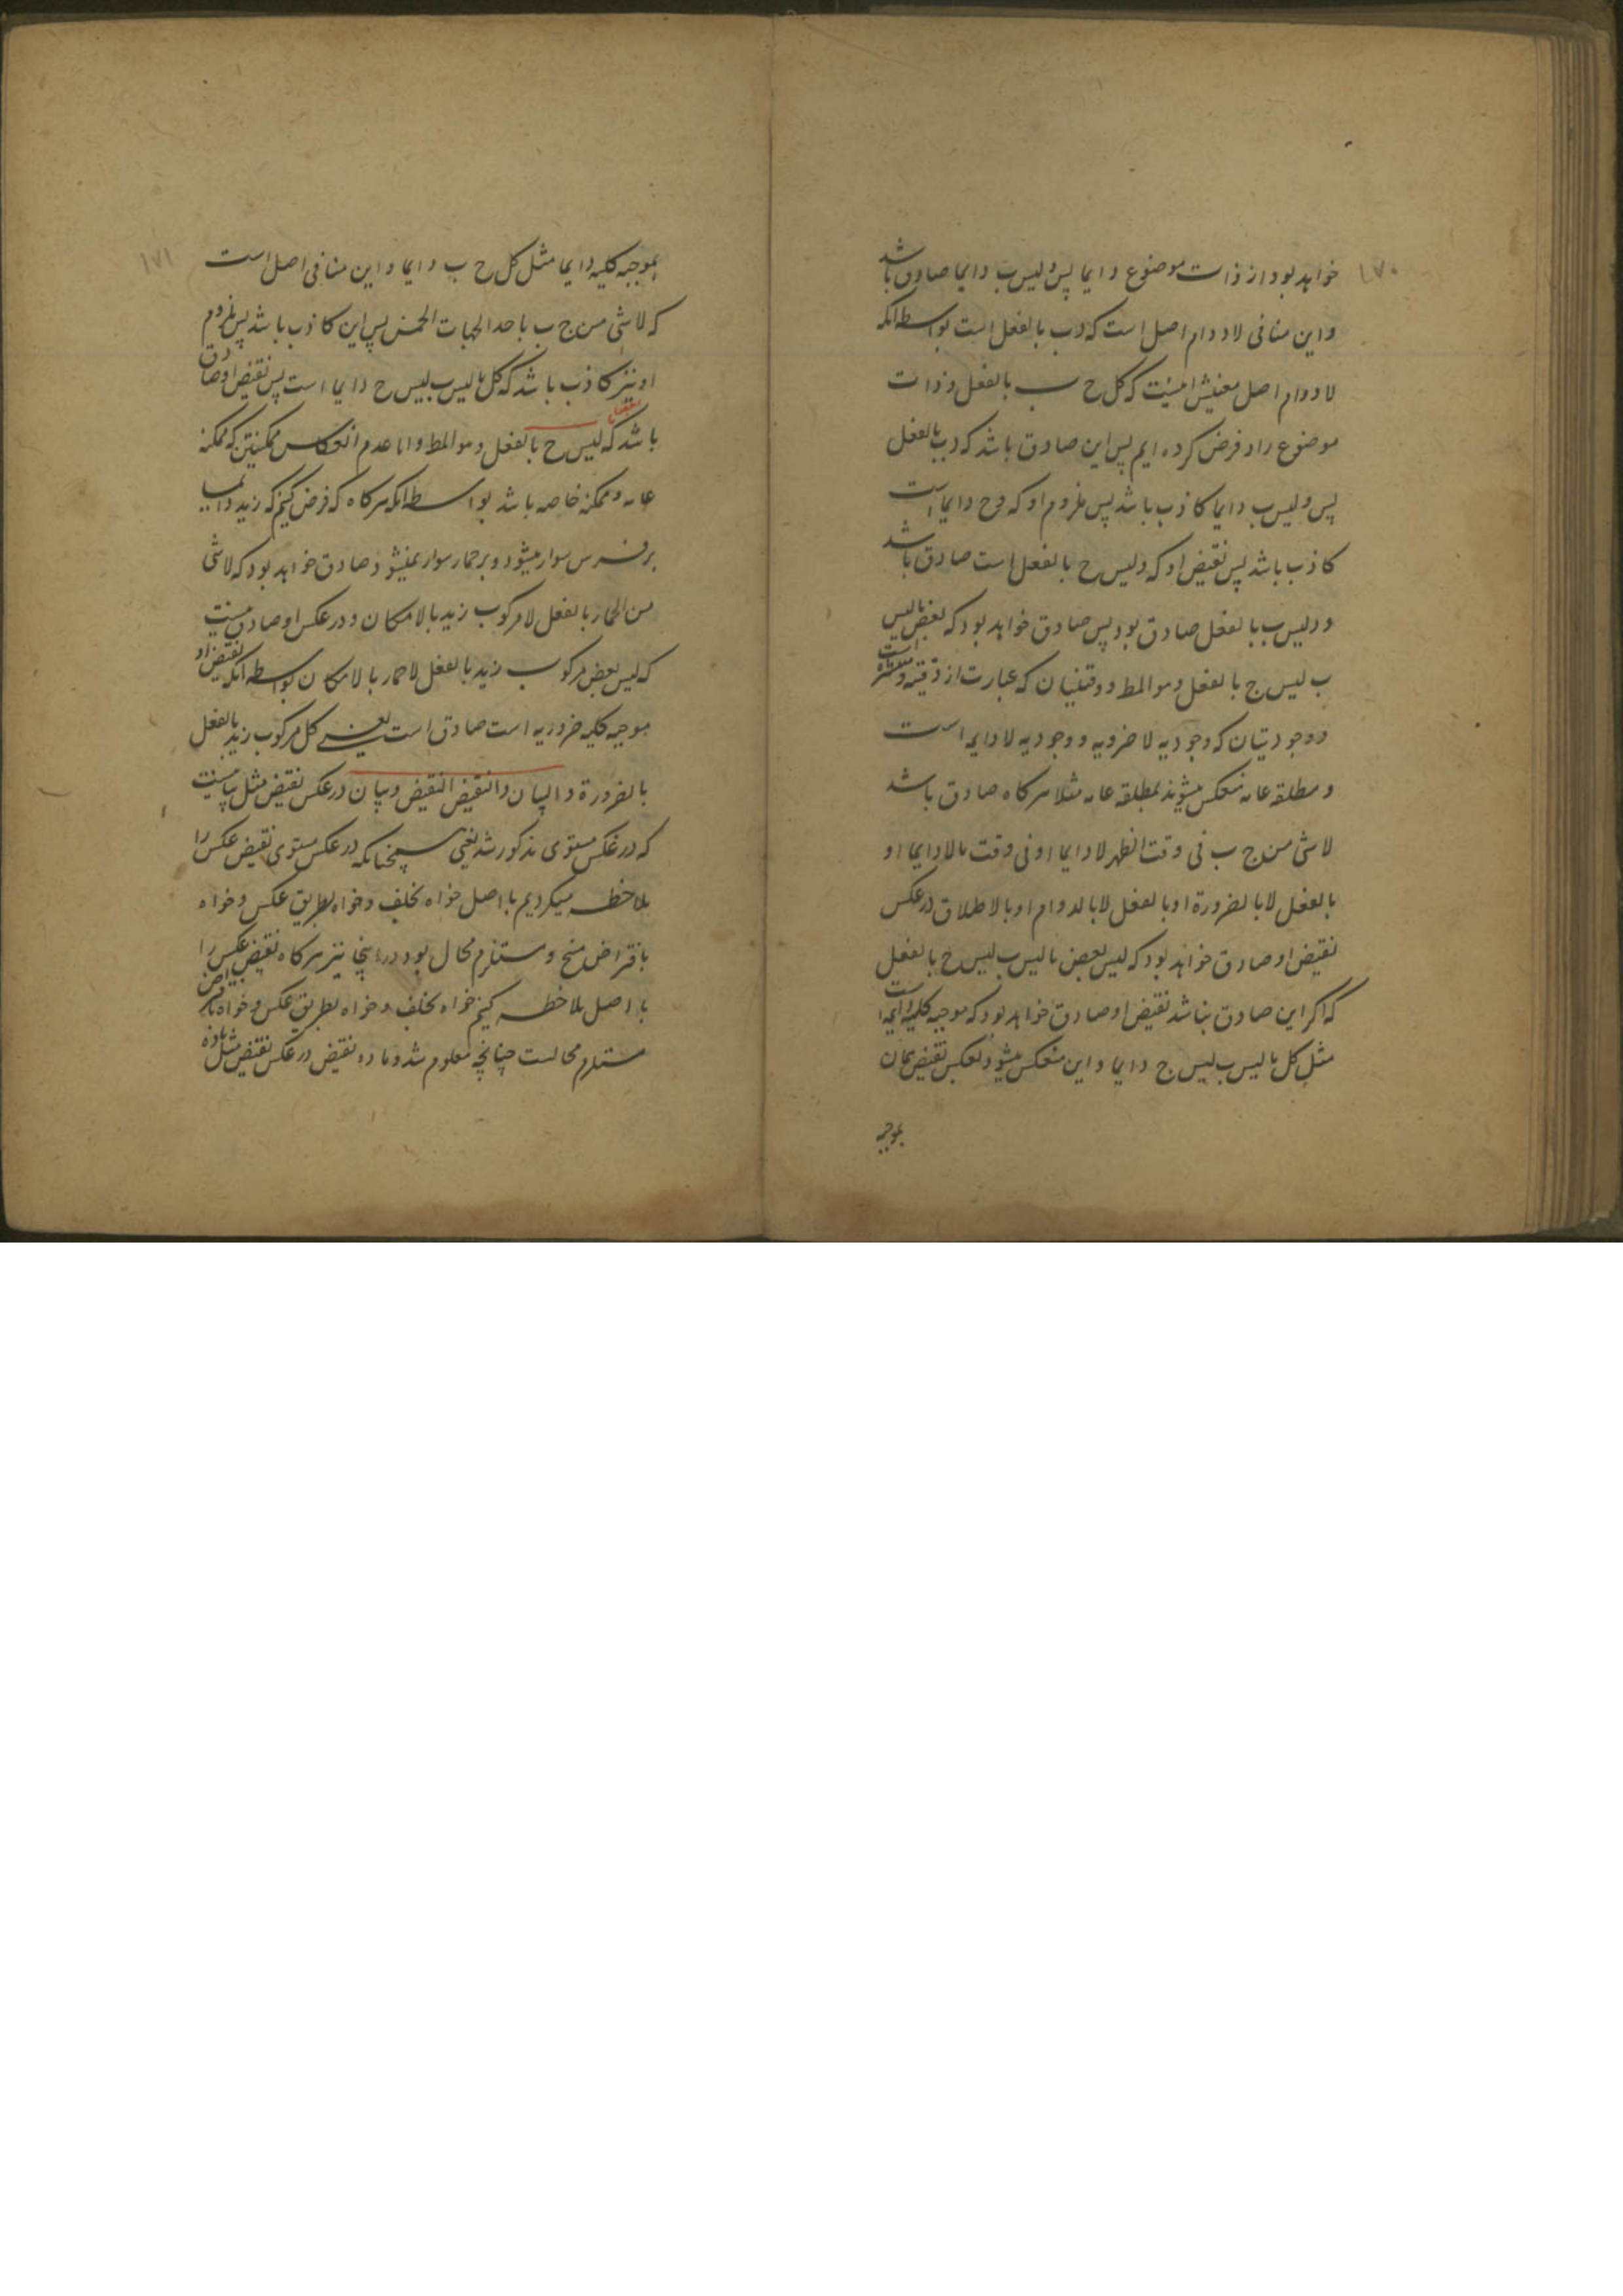 ۱۷۰
خواهد بود از ذات موضوع دایما پس د لیس ب دایما صادق باشد
و این منافی لادوام اصل است که د ب بالفعل است بواسطه انکه
لادوام اصل معنیش اینست که کل ج ب بالفعل و ذات
موضوع را د فرض کرده ایم پس این صادق باشد که د ب بالفعل
پس د لیس ب دایما کاذب باشد پس ملزوم او که د ج دایما است
کاذب باشد پس نقیض او که د لیس ج بالفعل است صادق باشد
و د لیس ب بالفعل صادق بود پس صادق خواهد بود که بعض ما لیس
ب لیس ج بالفعل و هو المط و وقتیتان که عبارت از وقتیه و منتشره است
و وجودیتان که وجودیه لا ضروریه و وجودیه لا دایمه است
و مطلقه عامه منعکس میشوند بمطلقه عامه مثلا هرکاه صادق باشد
لا شی من ج ب فی وقت الظهر لا دایما او فی وقت ما لا دایما او
بالفعل لا بالضرورة او بالفعل لا بالدوام او بالاطلاق در عکس
نقیض او صادق خواهد بود که لیس بعض ما لیس ب لیس ج بالفعل
که اکر این صادق نباشد نقیض او صادق خواهد بود که موجبه کلیه دایمه است
مثل کل ما لیس ب لیس ج دایما و این منعکس میشود بعکس نقیض بمان
بموجبه
۱۷۱
بموجبه کلیه دایما مثل کل ج ب دایما و این منافی اصل است
که لا شی من ج ب باحد الجهات الخمس پس این کاذب باشد پس ملزوم
او نیز کاذب باشد که کل ما لیس ب لیس ج دایما است پس نقیض او صادق
باشد که لیس ج بالفعل و هو المط و اما عدم انعکاس ممکنتین که ممکنه
عامه و ممکنه خاصه باشد بواسطه انکه هرکاه که فرض کنیم که زید دایما
بر فرس سوار میشود و بر حمار سوار نمیشود صادق خواهد بود که لا شی
من الحمار بالفعل لا مرکوب زید بالامکان و در عکس او صادق نیست
که لیس بعض مرکوب زید بالفعل لا حمار بالامکان بواسطه انکه نقیض او
موجبه کلیه ضروریه است صادق است یعنی کل مرکوب زید بالفعل
بالضرورة و البیان و النقیض النقیض و بیان در عکس نقیض مثل بیانیست
که در عکس مستوی مذکور شد یعنی همچنانکه در عکس مستوی نقیض عکس را
ملاحظه میکردیم با اصل خواه بخلف و خواه بطریق عکس و خواه
بافتراض منتج و مستلزم محال بود در اینجا نیز هرکاه نقیض عکس را
با اصل ملاحظه کنیم خواه بخلف و خواه بطریق عکس و خواه بافتراض
مستلزم محالست چنانچه معلوم شد و ماده نقیض در عکس نقیض مثل ماده